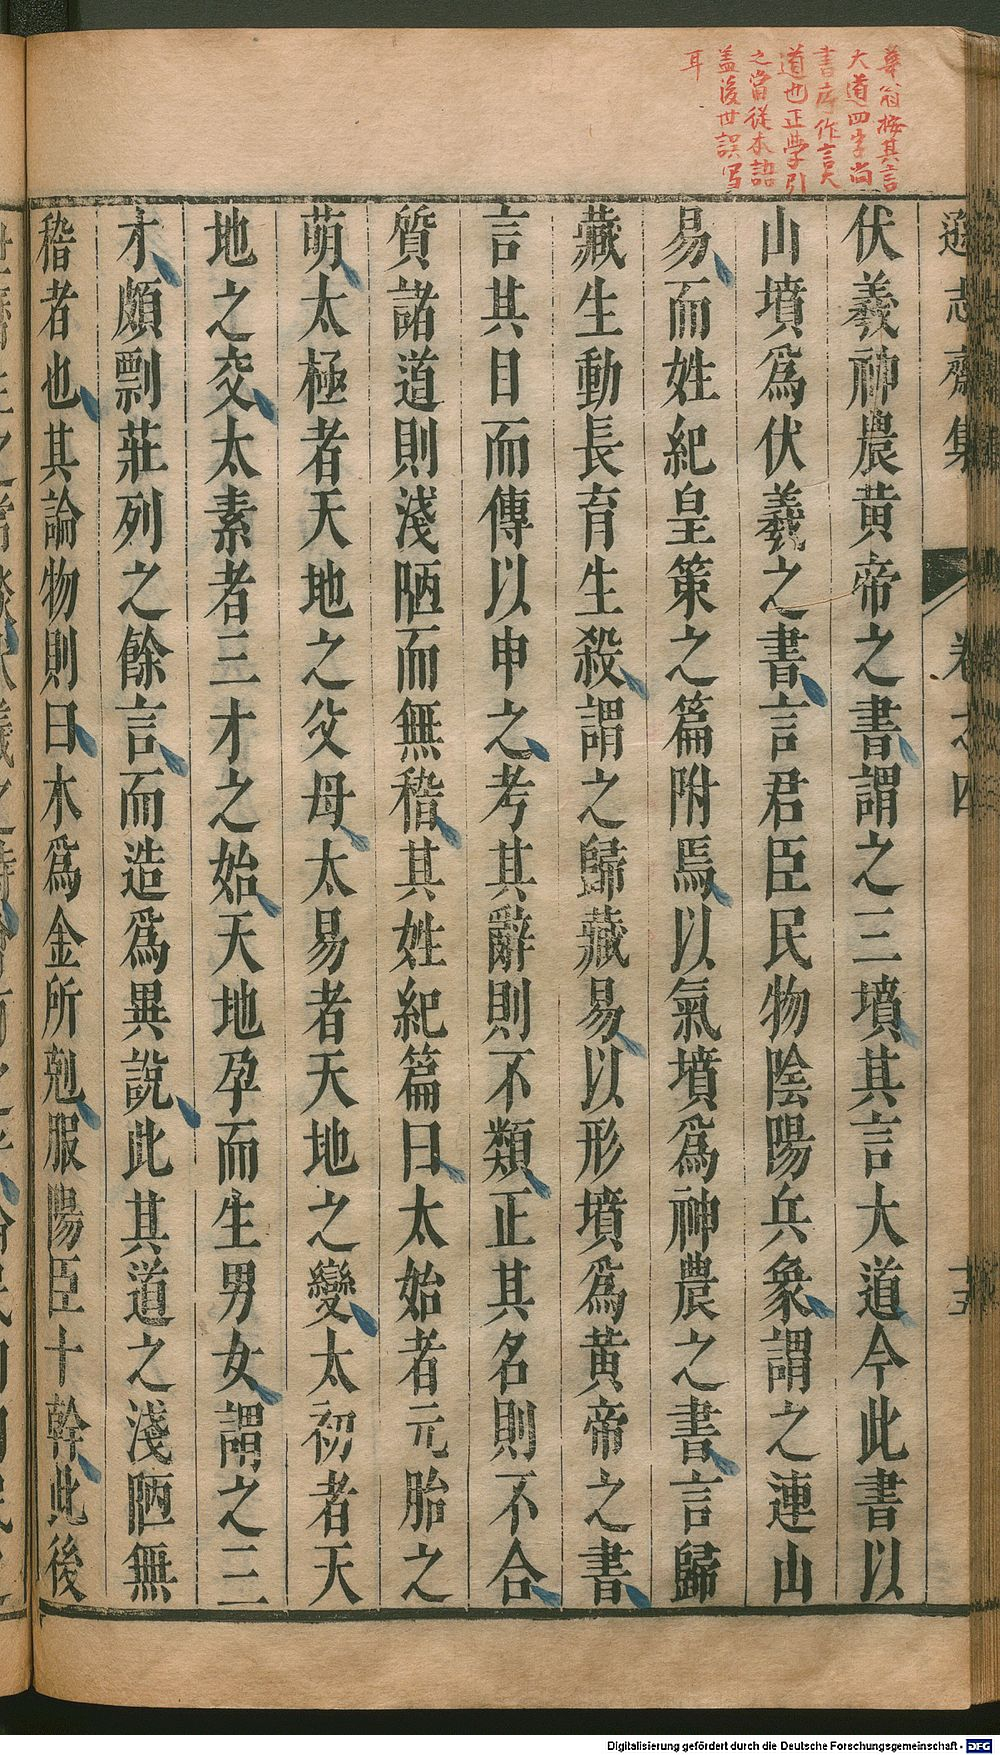 華翁按其言
大道四字尚
書序作言大
道也正學引
之當從本語
盖後世誤寫
耳
遜志齋集 卷之四 十五
伏羲神農黄帝之書謂之三墳其言大道今此書以
山墳爲伏羲之書言君臣民物陰陽兵象謂之連山
易而姓紀皇策之篇附焉以氣墳爲神農之書言歸
藏生動長育生殺謂之歸藏易以形墳爲黄帝之書
言其日而傳以申之考其辭則不類正其名則不合
質諸道則淺陋而無稽其姓紀篇曰太始者元胎之
萌太極者天地之父母太易者天地之變太初者天
地之交太素者三才之始天地孕而生男女謂之三
才頗剽莊列之餘言而造爲異說此其道之淺陋無
稽者也其論物則曰木爲金所剋服陽臣十幹此後
Digitalisierung gefördert durch die Deutsche Forschungsgemeinschaft - DFG